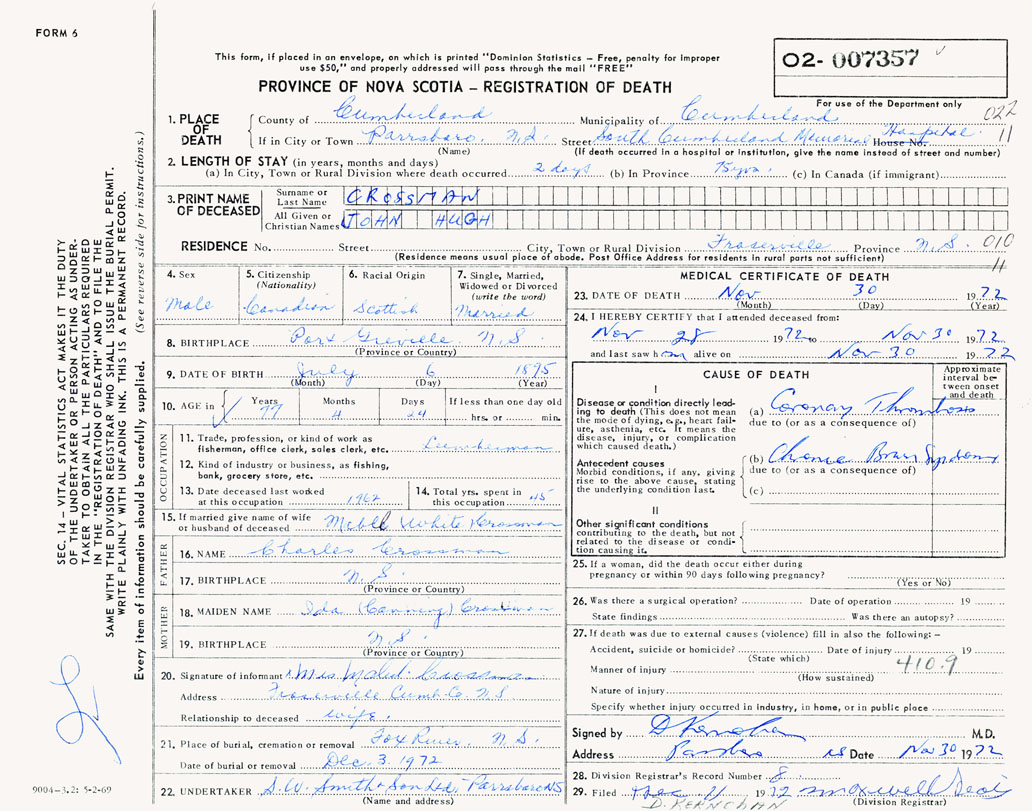 FORM 6
This form, if placed in an envelope, on which is printed "Dominion Statistics – Free, penalty for improper
use $50," and properly addressed will pass through the mail "FREE"
O2- 007357
For use of the Department only
PROVINCE OF NOVA SCOTIA – REGISTRATION OF DEATH
022
11
1. PLACE OF DEATH
County of Cumberland Municipality of Cumberland
If in City or Town Parrsboro, N.S. Street South Cumberland Memorial Hospital House No.
(Name) (If death occurred in a hospital or institution, give the name instead of street and number)
2. LENGTH OF STAY (in years, months and days)
(a) In City, Town or Rural Division where death occurred 2 days (b) In Province (c) In Canada (if immigrant)
3. PRINT NAME OF DECEASED
Surname or Last Name CROSSMAN
All Given or Christian Names JOHN HUGH
RESIDENCE No. Street City, Town or Rural Division Fraserville Province N.S. 010
(Residence means usual place of abode. Post Office Address for residents in rural parts not sufficient)
4. Sex
Male
5. Citizenship
(Nationality)
Canadian
6. Racial Origin
Scottish
7. Single, Married,
Widowed or Divorced
(write the word)
Married
8. BIRTHPLACE Port Greville N.S.
(Province or Country)
9. DATE OF BIRTH July 6 1895
(Month) (Day) (Year)
10. AGE in
Years Months Days If less than one day old
77 4 24 hrs. or min.
OCCUPATION
11. Trade, profession, or kind of work as
fisherman, office clerk, sales clerk, etc. Lumberman
12. Kind of industry or business, as fishing,
bank, grocery store, etc.
13. Date deceased last worked
at this occupation 1962
14. Total yrs. spent in
this occupation 45
15. If married give name of wife
or husband of deceased Mabel (White) Crossman
FATHER
16. NAME Charles Crossman
17. BIRTHPLACE N.S.
(Province or Country)
MOTHER
18. MAIDEN NAME Ida (Canning) Crossman
19. BIRTHPLACE N.S.
(Province or Country)
20. Signature of informant Mrs Mabel Crossman
Address Fraserville Cumb. Co. N.S
Relationship to deceased wife.
21. Place of burial, cremation or removal Fox River, N.S.
Date of burial or removal Dec. 3, 1972
22. UNDERTAKER S.W. Smith & Son Ltd, Parrsboro NS
(Name and address)
MEDICAL CERTIFICATE OF DEATH
23. DATE OF DEATH Nov 30 1972
(Month) (Day) (Year)
24. I HEREBY CERTIFY that I attended deceased from:
Nov 28 1972 to Nov 30 1972
and last saw him alive on Nov 30 1972
CAUSE OF DEATH
Approximate
interval be-
tween onset
and death
I
Disease or condition directly lead-
ing to death (This does not mean
the mode of dying, e.g., heart fail-
ure, asthenia, etc. It means the
disease, injury, or complication
which caused death.)
(a) Coronary Thrombosis
due to (or as a consequence of)
Antecedent causes
Morbid conditions, if any, giving
rise to the above cause, stating
the underlying condition last.
(b) Chronic Brain Syndrome
due to (or as a consequence of)
(c)
II
Other significant conditions
contributing to the death, but not
related to the disease or condi-
tion causing it.
25. If a woman, did the death occur either during
pregnancy or within 90 days following pregnancy?
(Yes or No)
26. Was there a surgical operation? Date of operation 19
State findings Was there an autopsy?
27. If death was due to external causes (violence) fill in also the following: –
Accident, suicide or homicide? Date of injury 19
(State which)
410.9
Manner of injury
(How sustained)
Nature of injury
Specify whether injury occurred in industry, in home, or in public place
Signed by D Kernohan M.D.
Address Parrsboro NS Date Nov 30 1972
28. Division Registrar's Record Number 8
29. Filed Dec. 1972
(Division Registrar)
D. KERNOHAN
SEC. 14 – VITAL STATISTICS ACT MAKES IT THE DUTY
OF THE UNDERTAKER OR PERSON ACTING AS UNDER-
TAKER TO OBTAIN ALL THE PARTICULARS REQUIRED
IN THE "REGISTRATION OF DEATH" AND TO FILE THE
SAME WITH THE DIVISION REGISTRAR WHO SHALL ISSUE THE BURIAL PERMIT.
WRITE PLAINLY WITH UNFADING INK. THIS IS A PERMANENT RECORD.
Every item of information should be carefully supplied. (See reverse side for instructions.)
9004-3.2: 5-2-69